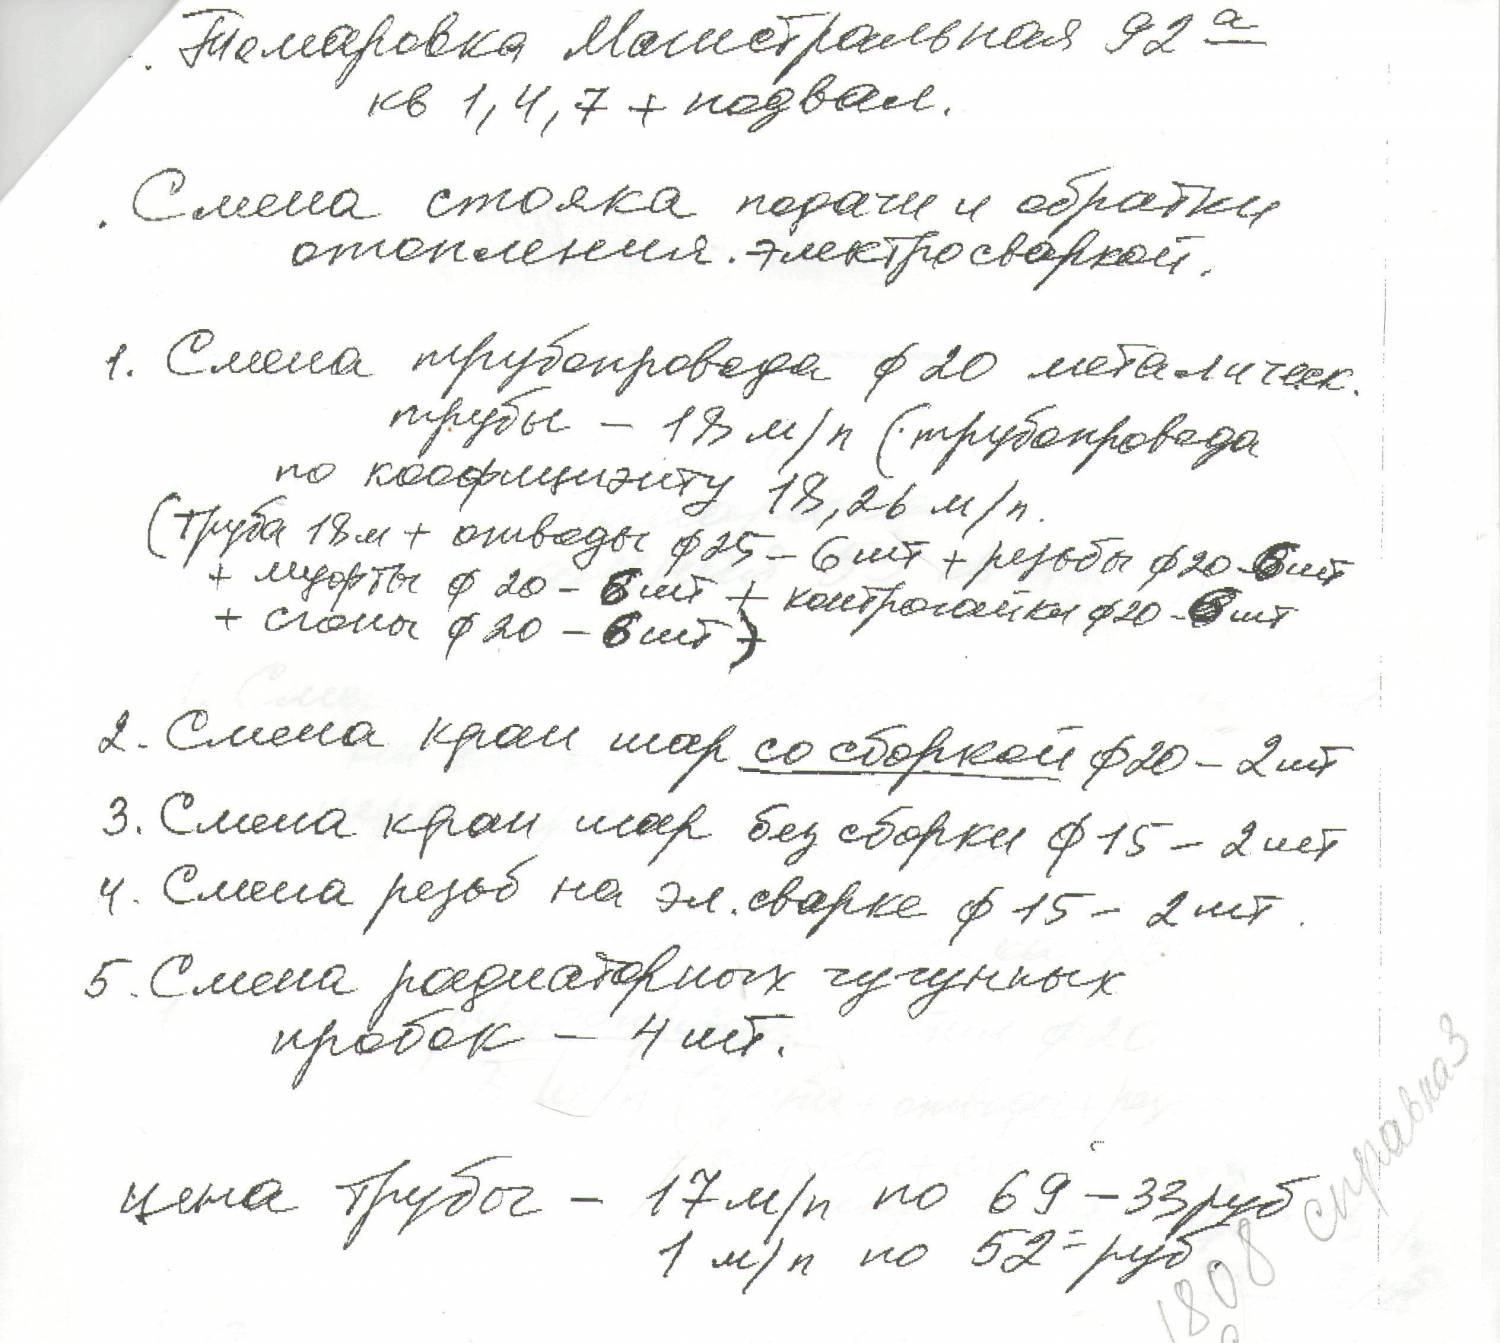 . Томаровка Магистральная 92 а
кв 1, 4, 7 + подвал.
. Смена стояка подачи и обратки
отопления. электросваркой.
1. Смена трубопровода ф 20 металическ.
трубы – 18 м/п (трубопровода
по коофициэнту 18,26 м/п.
(труба 18м + отводы ф25 – 6 шт + резьбы ф20-6шт
+ муфты ф 20 – 6 шт + контрогайки ф20-6 шт
+ сгоны ф 20 – 6 шт)
2. Смена кран шар со сборкой ф20 – 2 шт
3. Смена кран шар без сборки ф 15 – 2 шт
4. Смена резьб на эл. сварке ф 15 – 2 шт.
5. Смена радиаторных чугунных
пробок – 4 шт.
цена трубы – 17 м/п по 69 – 33 руб
1 м/п по 52 = руб.
1808 справка 3